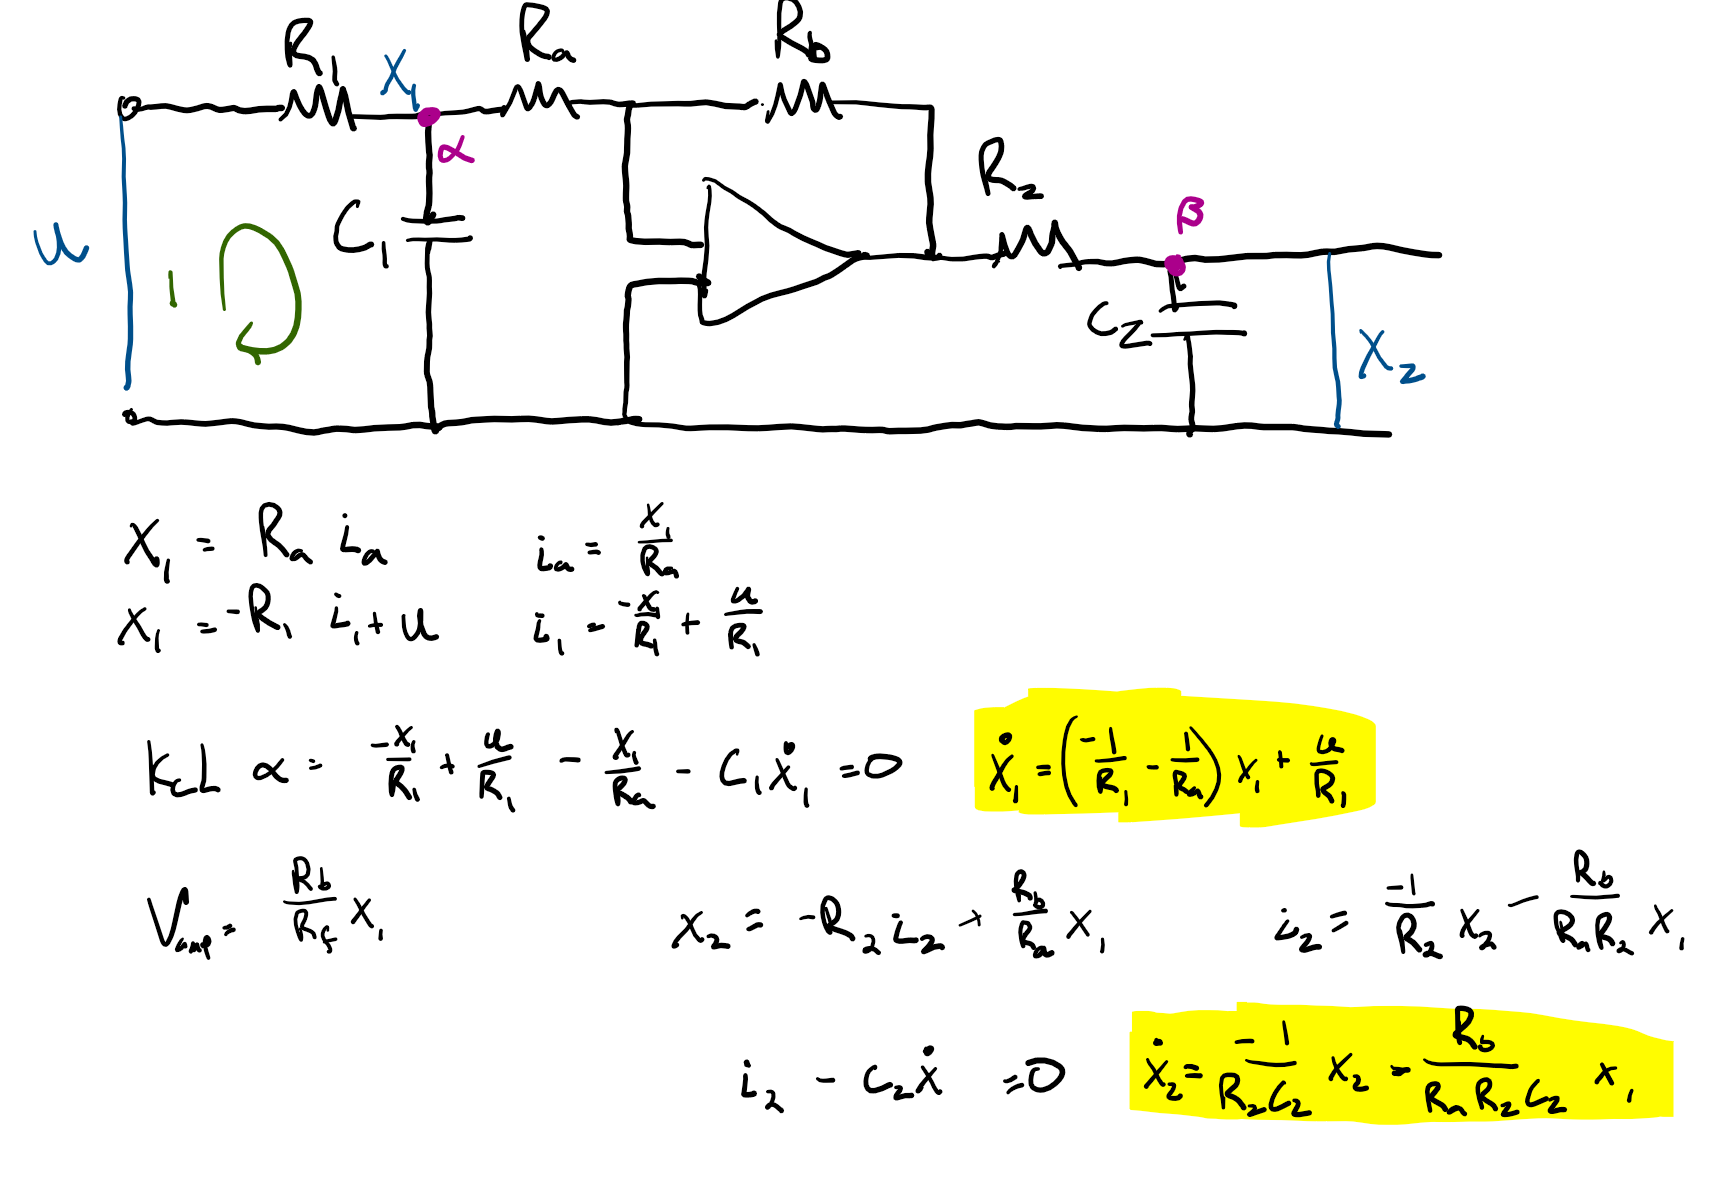 R₁ X₁ Rₐ R_b
α
R₂
β
u 1 C₁
C₂ X₂
X₁ = Rₐ iₐ    iₐ = X₁/Rₐ
X₁ = -R₁ i₁ + u    i₁ = -X₁/R₁ + u/R₁
KCL α = -X₁/R₁ + u/R₁ - X₁/Rₐ - C₁Ẋ₁ = 0    Ẋ₁ = (-1/R₁ - 1/Rₐ) X₁ + u/R₁
V_amp = R_b/R_f X₁    X₂ = -R₂ i₂ + R_b/Rₐ X₁    i₂ = -1/R₂ X₂ - R_b/(RₐR₂) X₁
i₂ - C₂Ẋ = 0    Ẋ₂ = -1/(R₂C₂) X₂ - R_b/(RₐR₂C₂) X₁